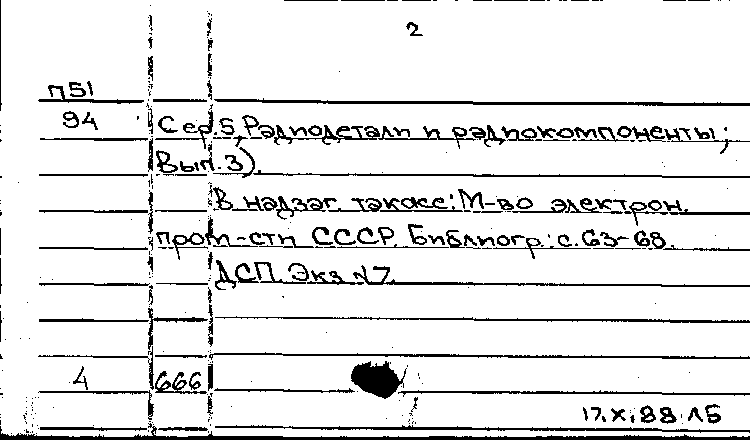 2
П51
94 Сер.5, Радиодетали и радиокомпоненты;
Вып.3).
В надзаг. также: М-во электрон.
пром-сти СССР. Библиогр.: с.63-68.
ДСП. Экз. N7.
4 666
17.X.88 15